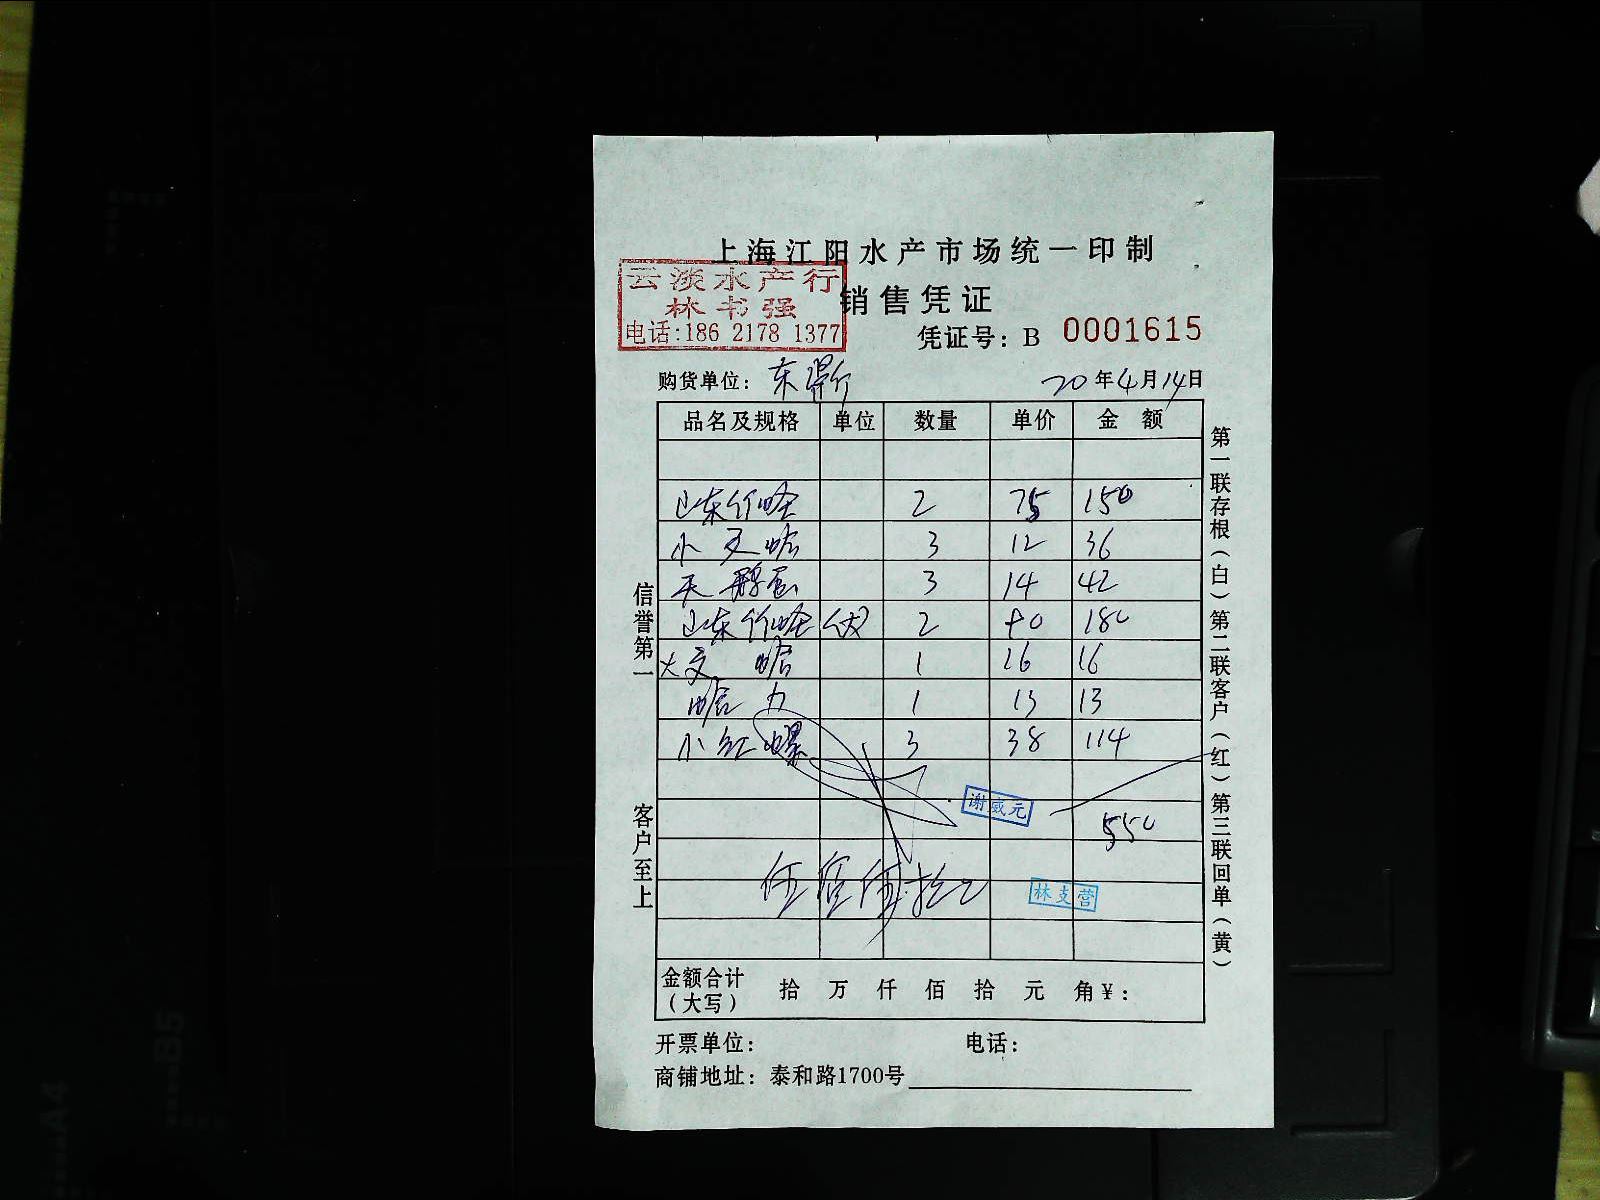 上海江阳水产市场统一印制
云淡水产行
林书强
电话:186 2178 1377
销售凭证
凭证号: B 0001615
购货单位: 东 20年4月14日
品名及规格 单位 数量 单价 金额
山东竹蛏 2 75 150
小文蛤 3 12 36
天鹅蛋 3 14 42
山东竹蛏(大) 2 90 180
大文蛤 1 16 16
蛤 1 13 13
小红螺 3 38 114
谢威元
550
伍佰伍拾元
林支营
金额合计(大写) 拾 万 仟 佰 拾 元 角¥:
开票单位: 电话:
商铺地址: 泰和路1700号
信誉第一 客户至上
第一联存根(白)第二联客户(红)第三联回单(黄)
B5
A4